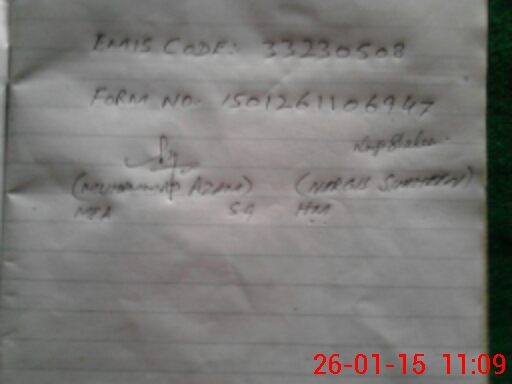 EMIS CODE: 33230508
FORM NO. 1501261106947
(MUHAMMAD AZAM) (NARGIS SHAHEEN)
MEA HM
26-01-15 11:09